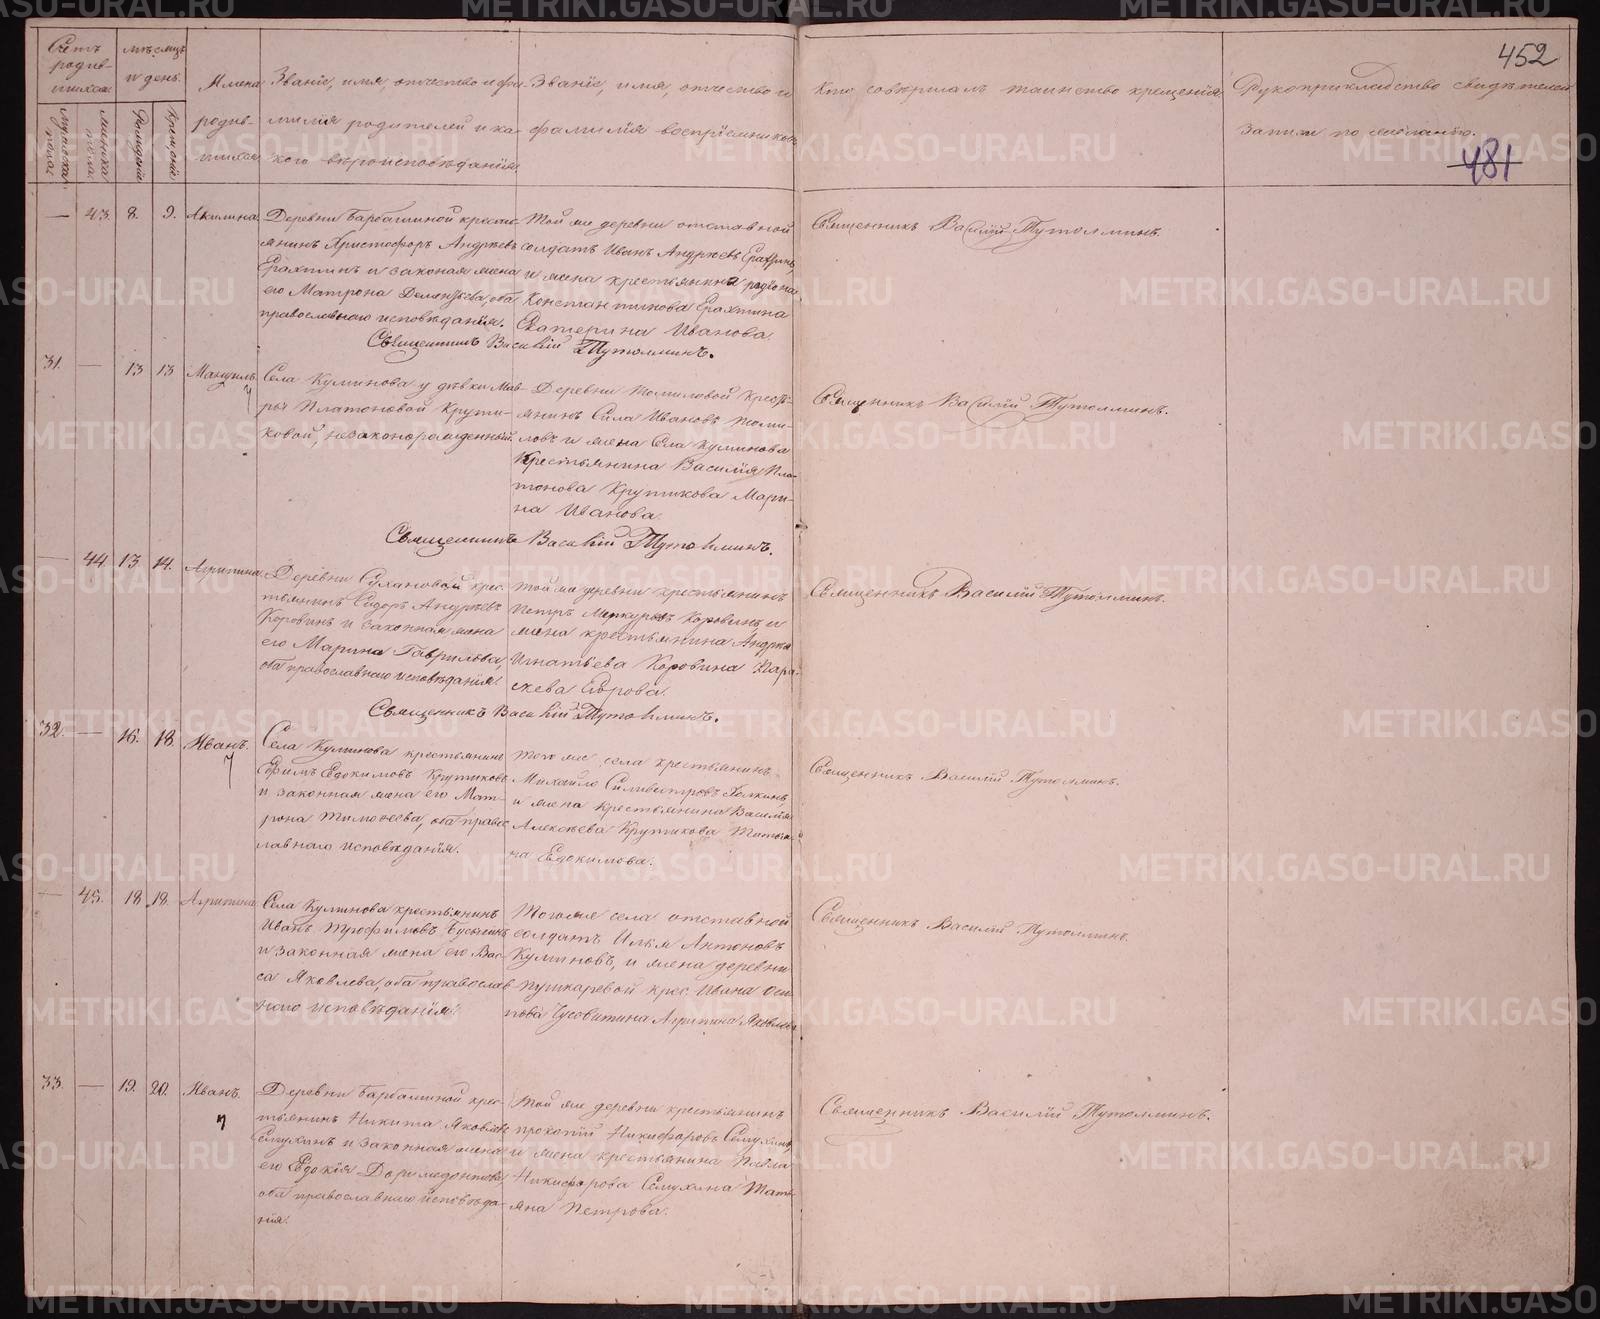 452
481
Счетъ родив-шихся
мѣсяцъ и день.
Имена родив-шихся
Званіе, имя, отчество и фа-
милія родителей и ка-
кого вѣроисповѣданія.
Званіе, имя, отчество и
фамилія воспріемниковъ
Кто совершалъ таинство крещенія.
Рукоприкладство свидѣтелей
записи по желанію.
мужеска пола.
женска пола.
рожденія
крещенія
— 43. 8. 9. Акилина.
Деревни Барбашиной кресть-
янинъ Христофоръ Андреевъ
Ерахтинъ и законая жена
его Матрона Дементьева, оба
православнаго исповѣданія.
Той же деревни отставной
солдатъ Иванъ Андреевъ Ерахтинъ,
и жена крестьянина
Константинова Ерахтина
Екатерина Иванова.
Священникъ Василій Тутолминъ.
Священникъ Василій Тутолминъ.
31. — 13 13 Мануилъ
Села Кулинова у дѣвки Мав-
ры Платоновой Крути-
ковой, незаконорожденный.
Деревни Томиловой Кресть-
янинъ Сила Ивановъ Томи-
ловъ и жена Села Кулинова
Крестьянина Василія Пла-
тонова Крутикова Мари-
на Иванова.
Священникъ Василій Тутолминъ.
Священникъ Василій Тутолминъ.
— 44 13 14. Агрипина.
Деревни крес-
тьянинъ Сидоръ Андреевъ
Коровинъ и законная жена
его Марина Гаврилова,
оба православнаго исповѣданія.
Той же деревни крестьянинъ
Петръ Меркурьевъ Коровинъ и
жена крестьянина Андрея
Игнатьева Коровина Пара-
скева
Священникъ Василій Тутолминъ.
Священникъ Василій Тутолминъ.
32. — 16. 18. Иванъ.
Села Кулинова крестьянинъ
Ефимъ Евдокимовъ Крутиковъ
и законная жена его Мат-
рона Тимофеева, оба правос-
лавнаго исповѣданія.
Того же села крестьянинъ
Михайло Силивестровъ
и жена крестьянина Василія
Алексѣева Крутикова Татья-
на Евдокимова.
Священникъ Василій Тутолминъ.
— 45. 18. 18. Агрипина
Села Кулинова крестьянинъ
Иванъ Трофимовъ
и законная жена его Вас-
са Яковлева, оба православ-
наго исповѣданія.
Того же села отставной
солдатъ Илья Антоновъ
Кулиновъ, и жена деревни
Пушкаревой крес. Ивана Оси-
пова Чусовитина Агрипина Яковлева
Священникъ Василій Тутолминъ.
33. — 19. 20. Иванъ.
Деревни Барбашиной крес-
тьянинъ Никита Яковлевъ
Семухинъ и законная жена
его Евдокія Доримедонтова
оба православнаго исповѣда-
нія.
Той же деревни крестьянинъ
Прокопій Никифоровъ Семухинъ,
и жена крестьянина Павла
Никифорова Семухина Тать-
яна Петрова.
Священникъ Василій Тутолминъ.
METRIKI.GASO-URAL.RU